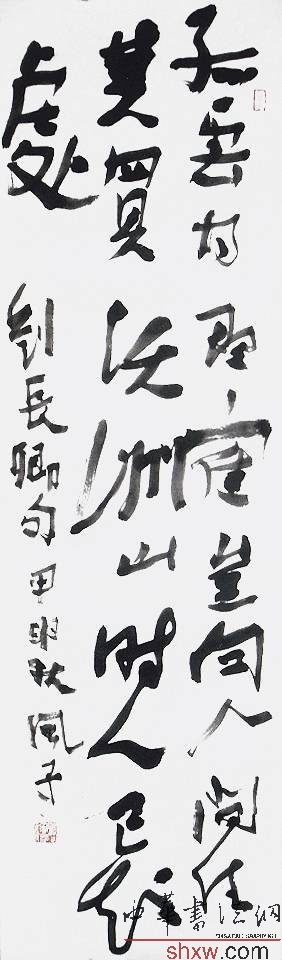 孤雲将野鶴豈向人间住
莫買沃洲山时人已知
處
劉長卿句甲申秋風子
中華書法網
shxw.com